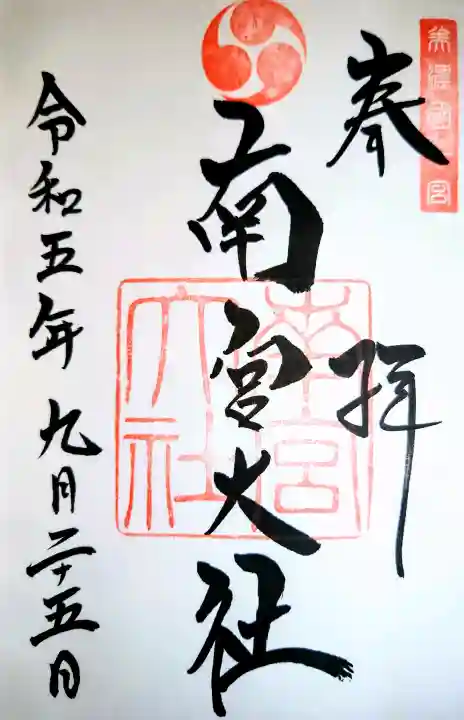 美濃國一宮
奉拝
南宮大社
南宮大社
令和五年九月二十五日